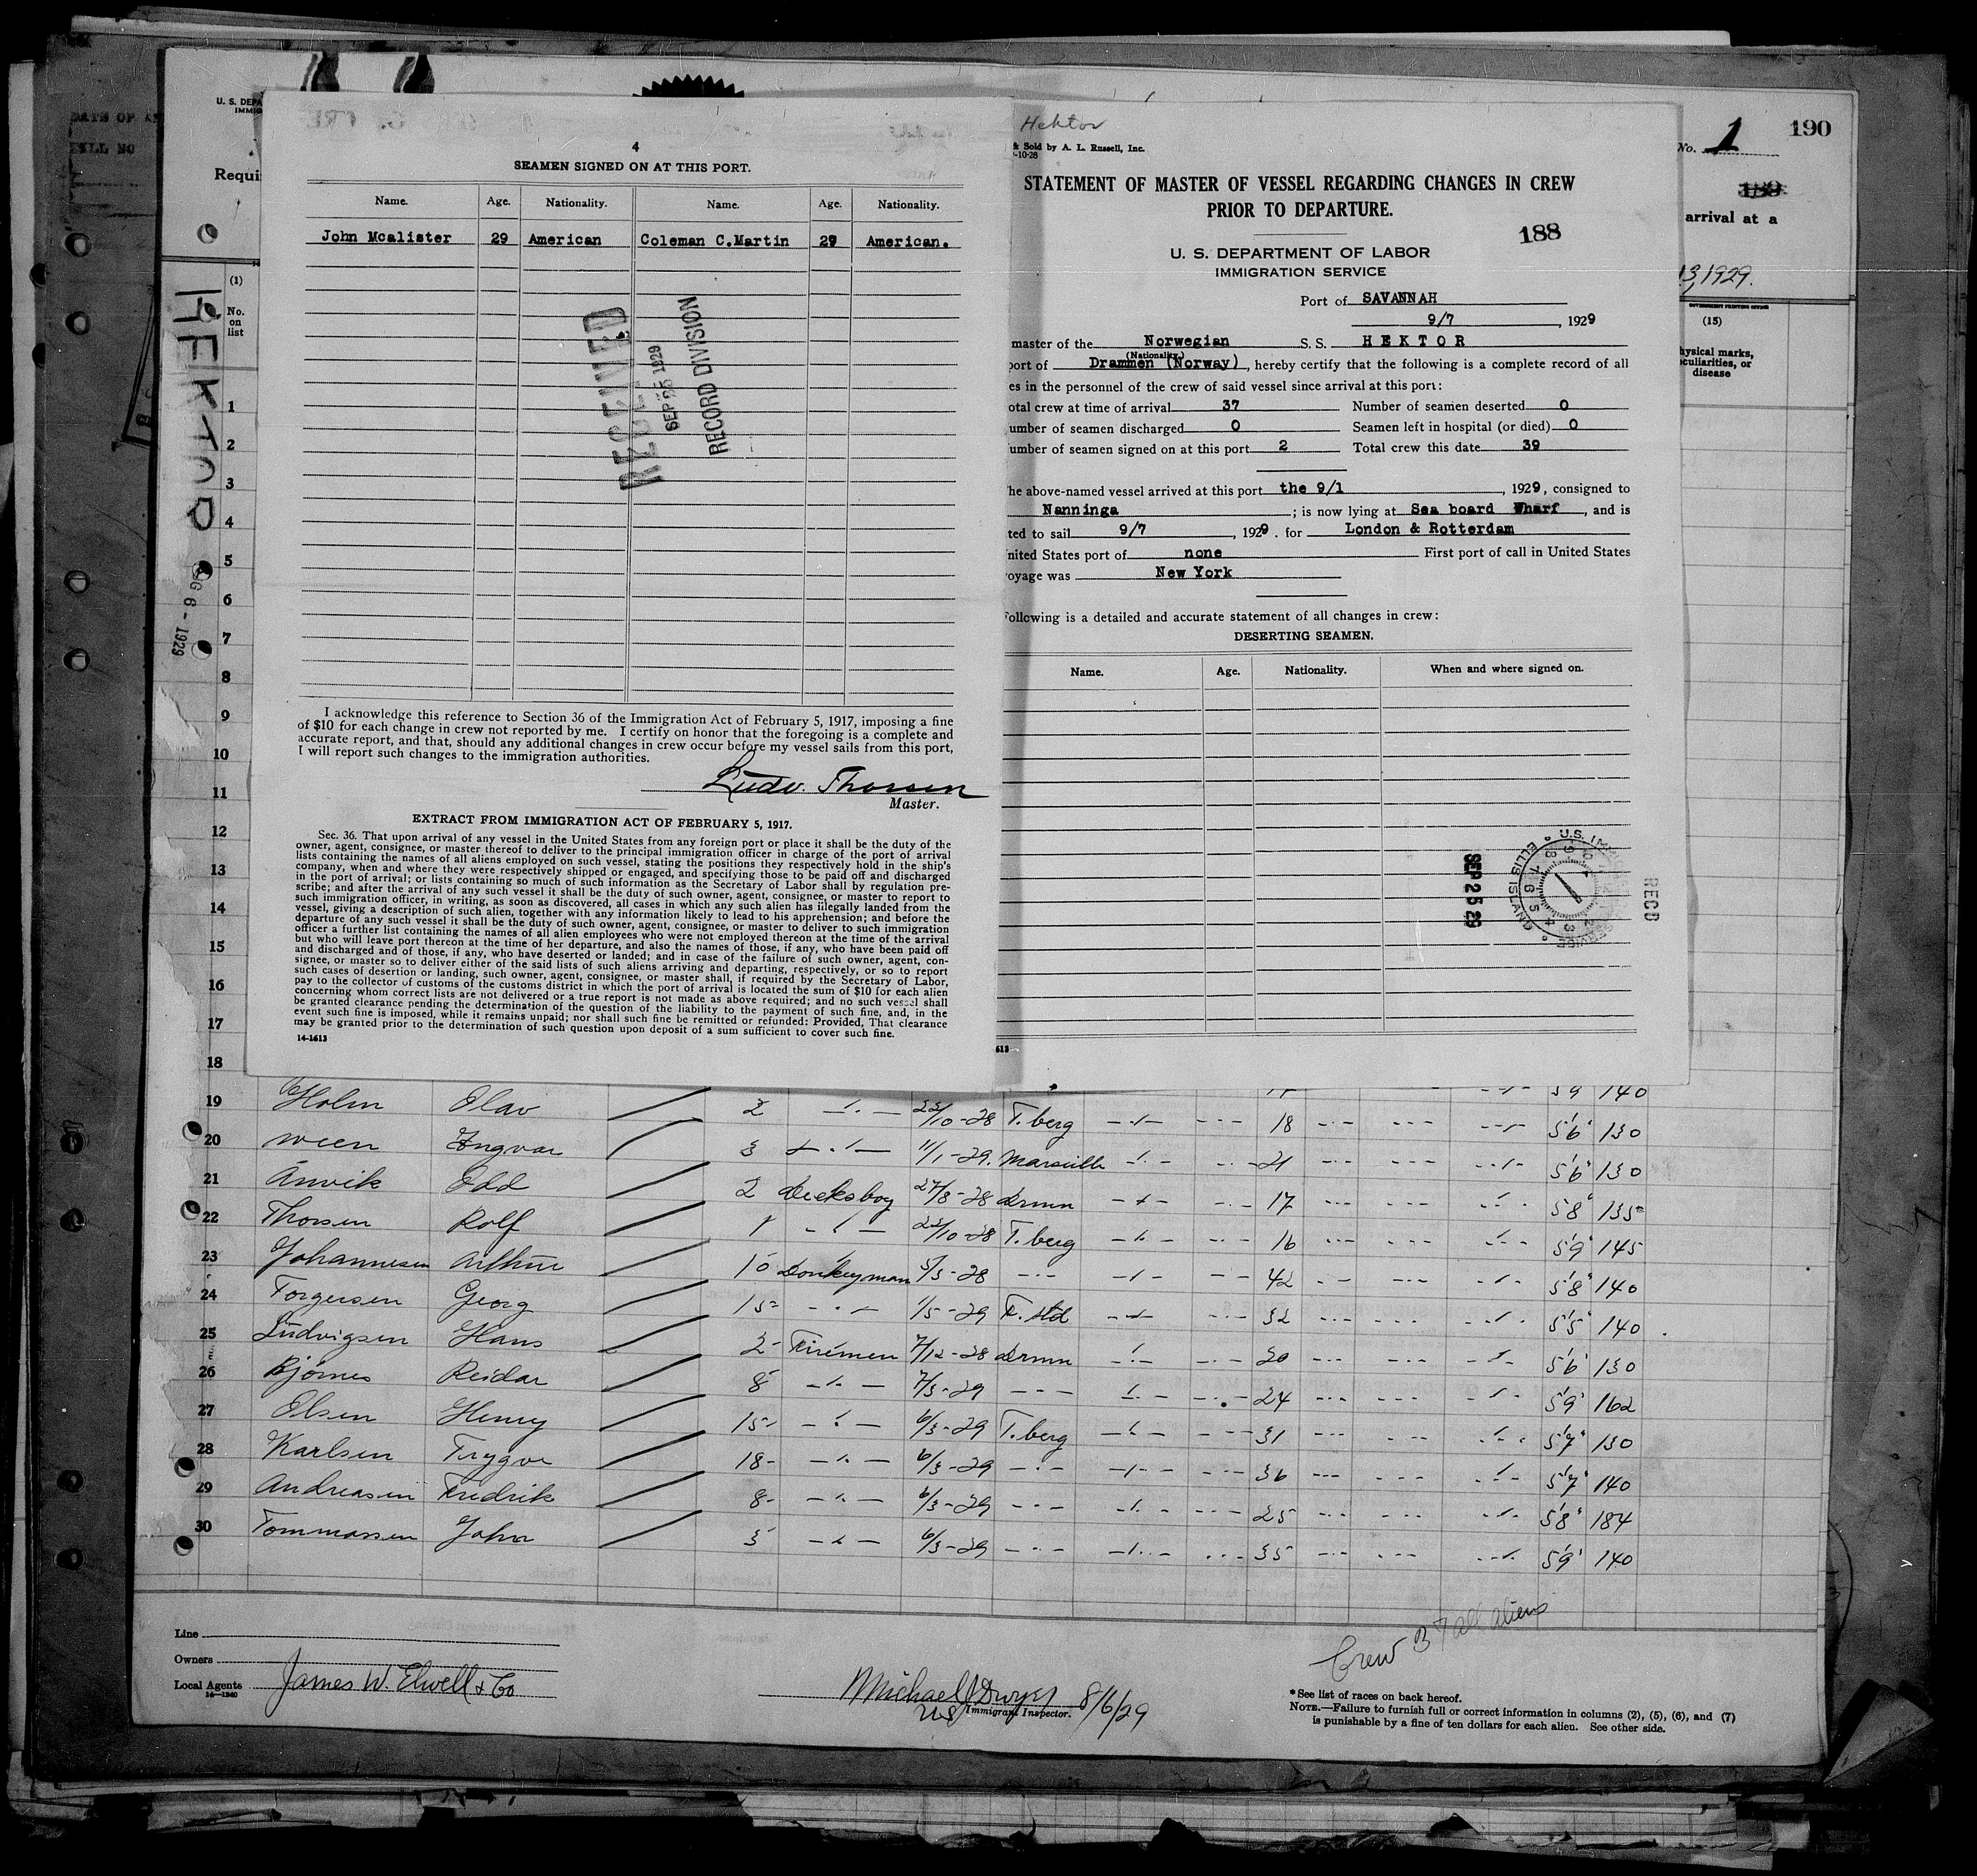 DATE OF
U. S. DEPA
IMMIG
Requi
HEKTOR
(1)
No.
on
list
No. 1
190
189
arrival at a
13, 1929.
(15)
hysical marks,
culiarities, or
disease
4
SEAMEN SIGNED ON AT THIS PORT.
Name. Age. Nationality. Name. Age. Nationality.
John Mcalister 29 American Coleman C.Martin 29 American.
RECEIVED
SEP 25 1929
RECORD DIVISION
I acknowledge this reference to Section 36 of the Immigration Act of February 5, 1917, imposing a fine
of $10 for each change in crew not reported by me. I certify on honor that the foregoing is a complete and
accurate report, and that, should any additional changes in crew occur before my vessel sails from this port,
I will report such changes to the immigration authorities.
Ludv. Thorsen
Master.
EXTRACT FROM IMMIGRATION ACT OF FEBRUARY 5, 1917.
Sec. 36. That upon arrival of any vessel in the United States from any foreign port or place it shall be the duty of the
owner, agent, consignee, or master thereof to deliver to the principal immigration officer in charge of the port of arrival
lists containing the names of all aliens employed on such vessel, stating the positions they respectively hold in the ship's
company, when and where they were respectively shipped or engaged, and specifying those to be paid off and discharged
in the port of arrival; or lists containing so much of such information as the Secretary of Labor shall by regulation pre-
scribe; and after the arrival of any such vessel it shall be the duty of such owner, agent, consignee, or master to report to
such immigration officer, in writing, as soon as discovered, all cases in which any such alien has illegally landed from the
vessel, giving a description of such alien, together with any information likely to lead to his apprehension; and before the
departure of any such vessel it shall be the duty of such owner, agent, consignee, or master to deliver to such immigration
officer a further list containing the names of all alien employees who were not employed thereon at the time of the arrival
but who will leave port thereon at the time of her departure, and also the names of those, if any, who have been paid off
and discharged and of those, if any, who have deserted or landed; and in case of the failure of such owner, agent, con-
signee, or master so to deliver either of the said lists of such aliens arriving and departing, respectively, or so to report
such cases of desertion or landing, such owner, agent, consignee, or master shall, if required by the Secretary of Labor,
pay to the collector of customs of the customs district in which the port of arrival is located the sum of $10 for each alien
concerning whom correct lists are not delivered or a true report is not made as above required; and no such vessel shall
be granted clearance pending the determination of the question of the liability to the payment of such fine, and, in the
event such fine is imposed, while it remains unpaid; nor shall such fine be remitted or refunded: Provided, That clearance
may be granted prior to the determination of such question upon deposit of a sum sufficient to cover such fine.
14-1613
Hektor
& Sold by A. L. Russell, Inc.
-10-28
STATEMENT OF MASTER OF VESSEL REGARDING CHANGES IN CREW
PRIOR TO DEPARTURE.
188
U. S. DEPARTMENT OF LABOR
IMMIGRATION SERVICE
Port of SAVANNAH
9/7, 1929
master of the Norwegian S. S. HEKTOR
(Nationality.)
port of Drammen (Norway), hereby certify that the following is a complete record of all
es in the personnel of the crew of said vessel since arrival at this port:
otal crew at time of arrival 37 Number of seamen deserted 0
umber of seamen discharged 0 Seamen left in hospital (or died) 0
umber of seamen signed on at this port 2 Total crew this date 39
he above-named vessel arrived at this port the 9/1, 1929, consigned to
Nanninga; is now lying at Sea board Wharf, and is
ted to sail 9/7, 1929. for London & Rotterdam
nited States port of none First port of call in United States
oyage was New York
ollowing is a detailed and accurate statement of all changes in crew:
DESERTING SEAMEN.
Name. Age. Nationality. When and where signed on.
U.S. IMM
SERVICE
ELLIS ISLAND
SEP 25 29
RECD
613
1
2
3
4
5
6
7
8
9
10
11
12
13
14
15
16
17
18
5 9 140
19 Holm Olav 2 22/10-28 T.berg 18 5'6" 130
20 Ween Yngvar 3 11/1-29. Marseille 21 5'6" 130
21 Anvik Odd 2 Decksboy 27/8-28 Drmn 17 5'8" 135
22 Thorsen Rolf 1 22/10-28 T.berg 16 5'9" 145
23 Johannesen Arthur 10 Donkeyman 5/3-28 42 5'8" 140
24 Torgersen Georg 15 1/5-29 F.std 32 5'5" 140
25 Ludvigsen Hans 2 Firemen 7/12-28 Drmn 20 5'6" 130
26 Bjørnes Reidar 8 7/3-29 24 5'9" 162
27 Olsen Henry 15 6/3-29 T.berg 31 5'7" 130
28 Karlsen Trygve 18 6/3-29 36 5'7" 140
29 Andreasen Fredrik 8 6/3-29 25 5'8" 184
30 Tommassen John 5 6/3-29 35 5'9" 140
Line
Owners
Local Agents James W. Elwell & Co
14-1240
Michael J Dwyer 8/6/29
US Immigrant Inspector.
Crew 37 all aliens
*See list of races on back hereof.
NOTE.—Failure to furnish full or correct information in columns (2), (5), (6), and (7)
is punishable by a fine of ten dollars for each alien. See other side.